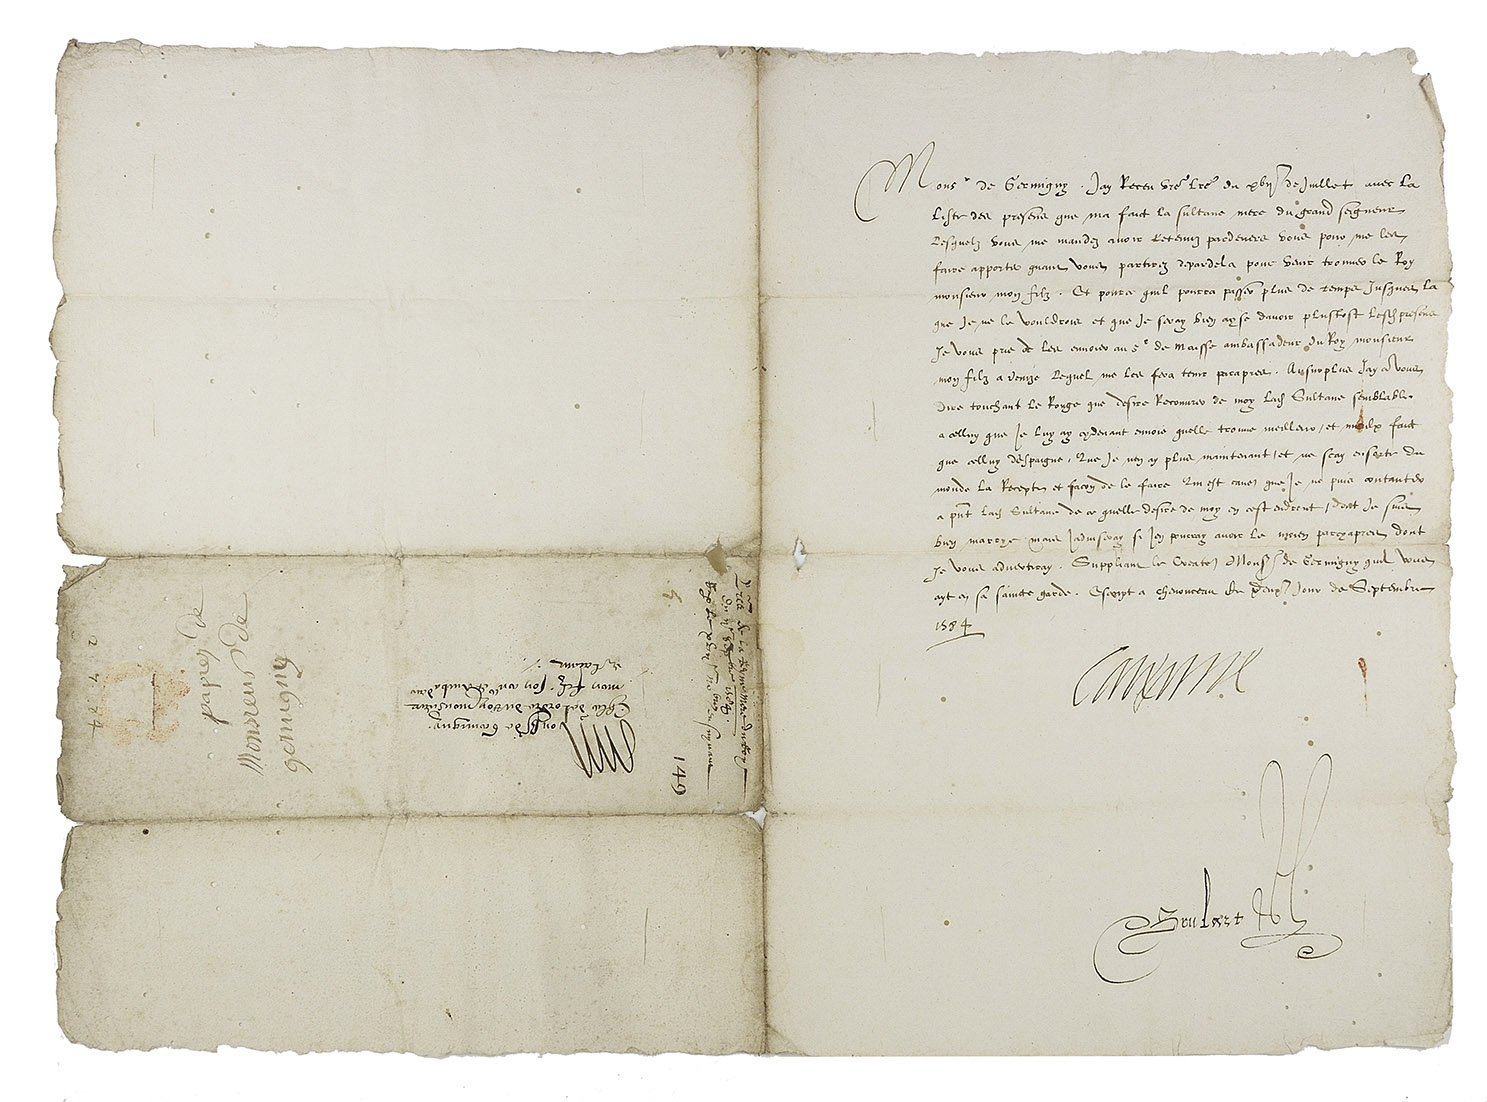 Mons.r de Germigny. Jay Receu vre lre du xvije de Juillet avec la
Liste des presens que ma faict la sultane mere du grand seigneur
Lesquelz vous me mandez avoir Retenuz pardevers vous pour me les
faire apporter quand vous partirez depardela pour venir trouver le Roy
monsieur mon filz. Et pource quil pourra passer plus de temps Jusques la
que Je ne le vouldrois et que Je seray bien ayse davoir plustost lesd presens
Je vous prie de les envoier au Sr de Maisse ambassadeur du Roy monsieur
mon filz a Venize Lequel me les fera tenir par apres. Au surplus Jay a vous
dire touchant le Rouge que desire Recouvrer de moy lad Sultane semblable
a celluy que Je luy ay cydevant envoié quelle trouve meilleur / et mieulx faict
que celluy despaigne, Que Je nen ay plus maintenant / et ne scay en sorte du
monde la Recepte et facon de le faire Qui est cause que Je ne puis contanter
a pnt lad Sultane de ce quelle desire de moy en cest endroict / dont Je suis
bien marrye mais Jadviseray si Jen pourray avoir le moien par cy apres dont
Je vous advertiray. Suppliant le Createur Monsr de Germigny quil vous
ayt en sa saincte garde. Escript a Chenonceau le Jour de Septembre
1584
Caterine
Brulart
papies de
Monsieur de
germigny
Monsr de Germigny
Chlr de lordre du Roy monsieur
mon filz, son conr et Ambassadeur
en Levant
149